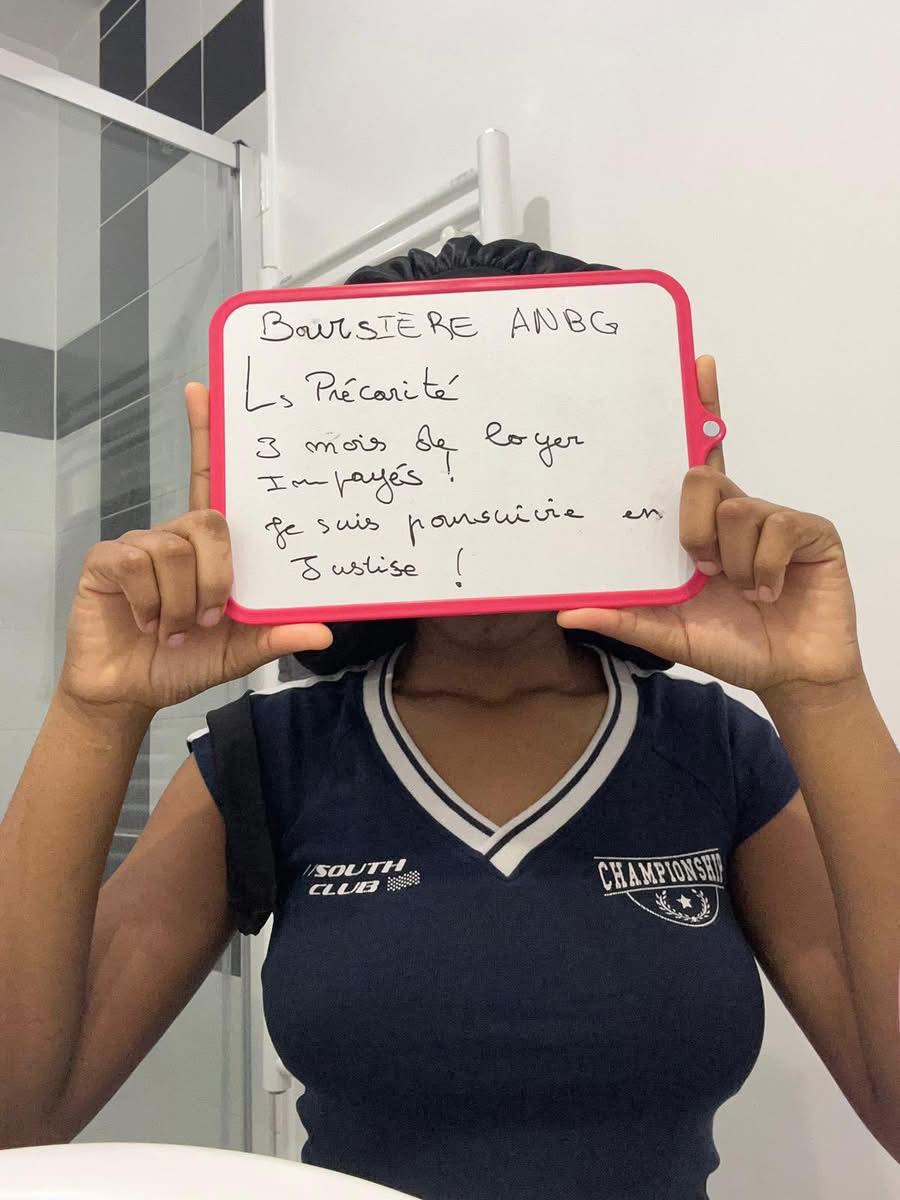 BOURSIÈRE ANBG
Ls Précarité
3 mois de loyer
Impayés !
Je suis poursuivie en
Justise !
SOUTH
CLUB
CHAMPIONSHIP